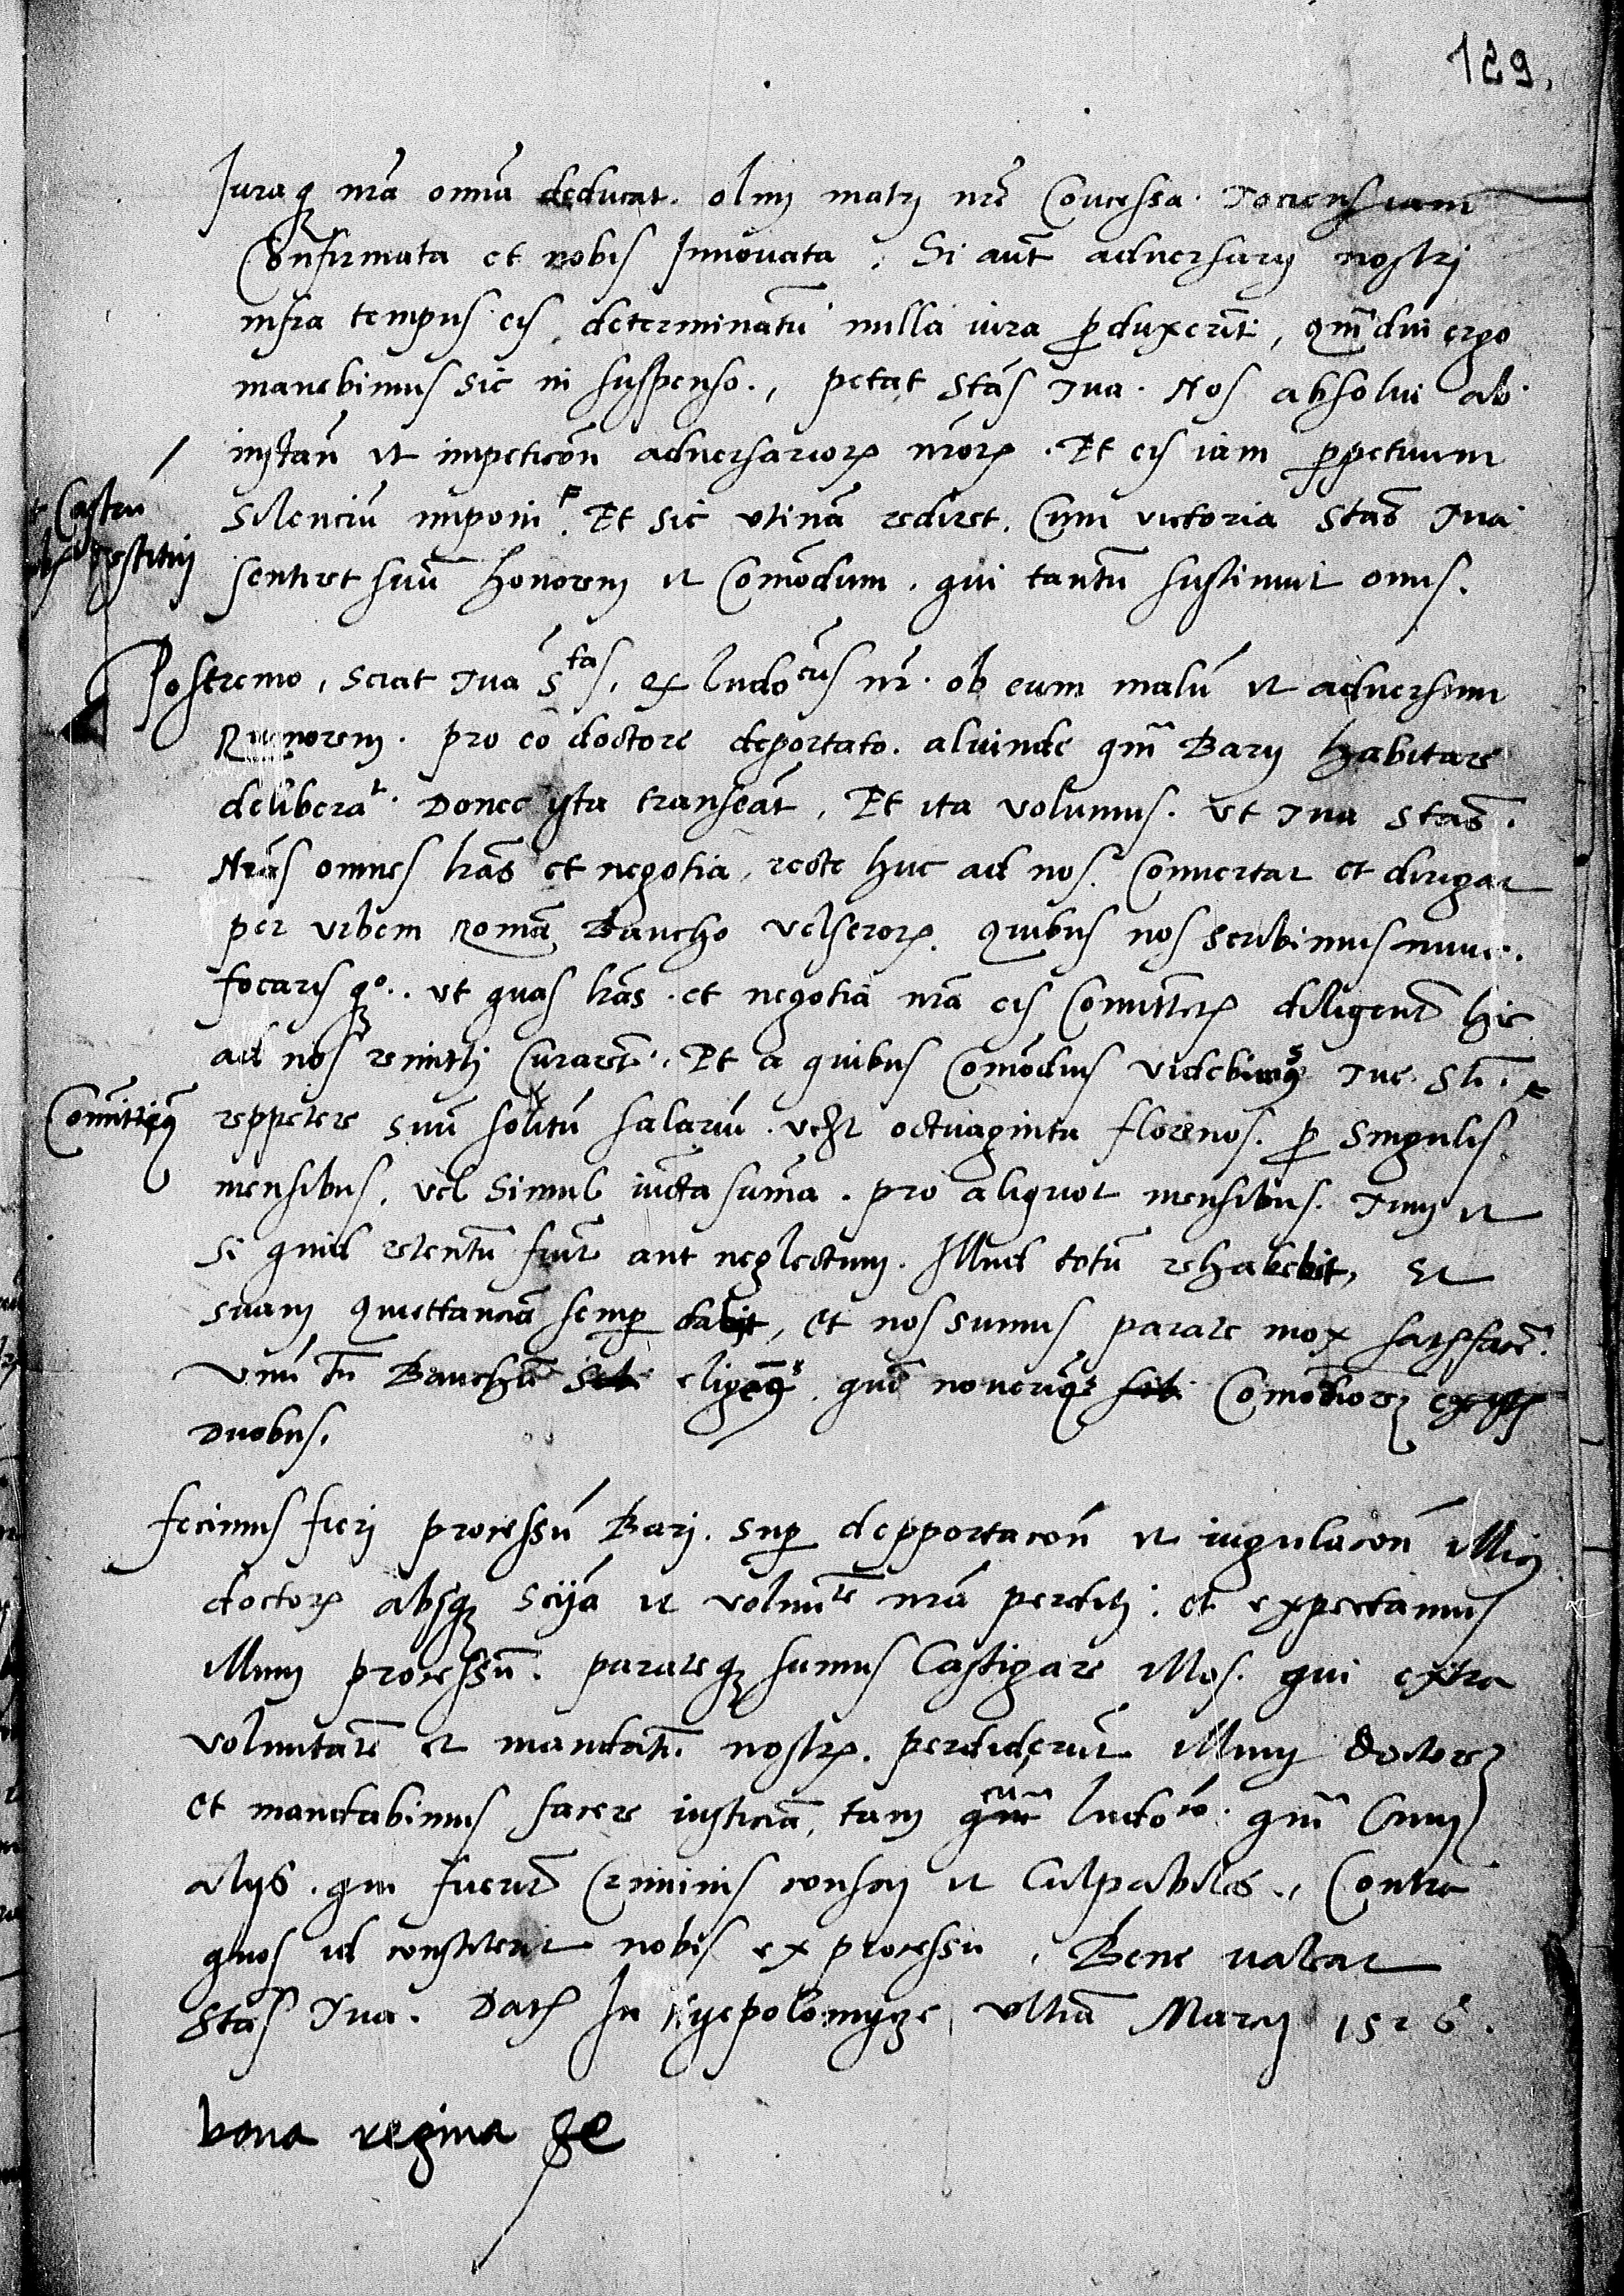 159.
Iuraq nrã omĩa deducat. olim matri nrẽ Concessa. Tociens iam
Confirmata et nobis Innouata. Si aut̃ aduersarij nostri
infra tempus eis determinatũ nulla iura produxerĩt, qm̃diu ergo
manebimus sic in suspenso., petat Stãs Tua. Nos absolui ab
instan̄ et impeticoñ aduersariorꝝ nr̃orꝝ. Et eis iam perpetuum
et Castrũ
Silenciũ imponi. Et sic vtinã rediret. Cum victoria Stas̃ Tua
nobis restitui
sentiret suũ honorem et Comõdum. qui tantũ sustinuit onus.
Postremo, sciat Tua Stas, ex ludocus nr̃. ob eum malũ et aduersum
Rumorem. pro eõ doctore deportato. aliunde qm̃ Barij habitare
deliberat. Donec ista transeãt, Et ita volumus. vt Tua Stas̃.
Nrãs omnes lrãs et negotia, recte huc ad nos. Conuertat et dirigat
per vrbem Romã Bancho velserorꝝ. Quibus nos scribimus nunc.
focaris qꝫ. vt quas lrãs. et negotia nrã eis Comitteret diligent̃ hic
ad nos remitti Curarẽt. Et a quibus Comõdius videbimus Tue Sti.
Comittimus reppetere suũ solitũ salariũ. vcꝫ octuaginta florenos. pro singulis
mensibus. vel simul iũcta sum̃a. pro aliquot mensibus. Tum et
si quid retentũ fuit̃ aut neglectum. Illud totũ rehabebit, Et
suam Quiettanciã semper dabit, et nos sumus parate mox satisfacẽ.
Vnũ tñ Banchũ eligemus. quẽ nouerimus Comõdiorem
Duobus.
fecimus fieri processũ Barij. super depportacoñ et iugulacoñ illius
doctoris absqꝫ sciã et voluntẽ nrã perditi. et expectamus
Illum processũ. parateqꝫ sumus Castigare illos. qui extra
voluntatẽ et mandatũ nostrꝝ. perdiderũt Illum doctorem
et mandabimus facere iusticiã, tam cum ludoco. qm̃ Cum
alijs. qui fuerĩt Criminis conscij et Culpabiles., Contra
quos id constiterit nobis ex processu, Bene valeat
Stas̃ Tua. Datꝫ In Nyepolomycze vltiã Marcij 1526.
bona regina